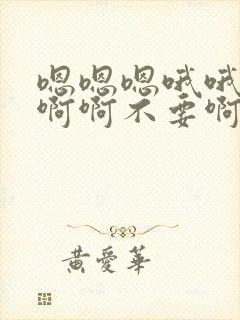 嗯嗯嗯哦哦
啊啊不要啊
黄爱华